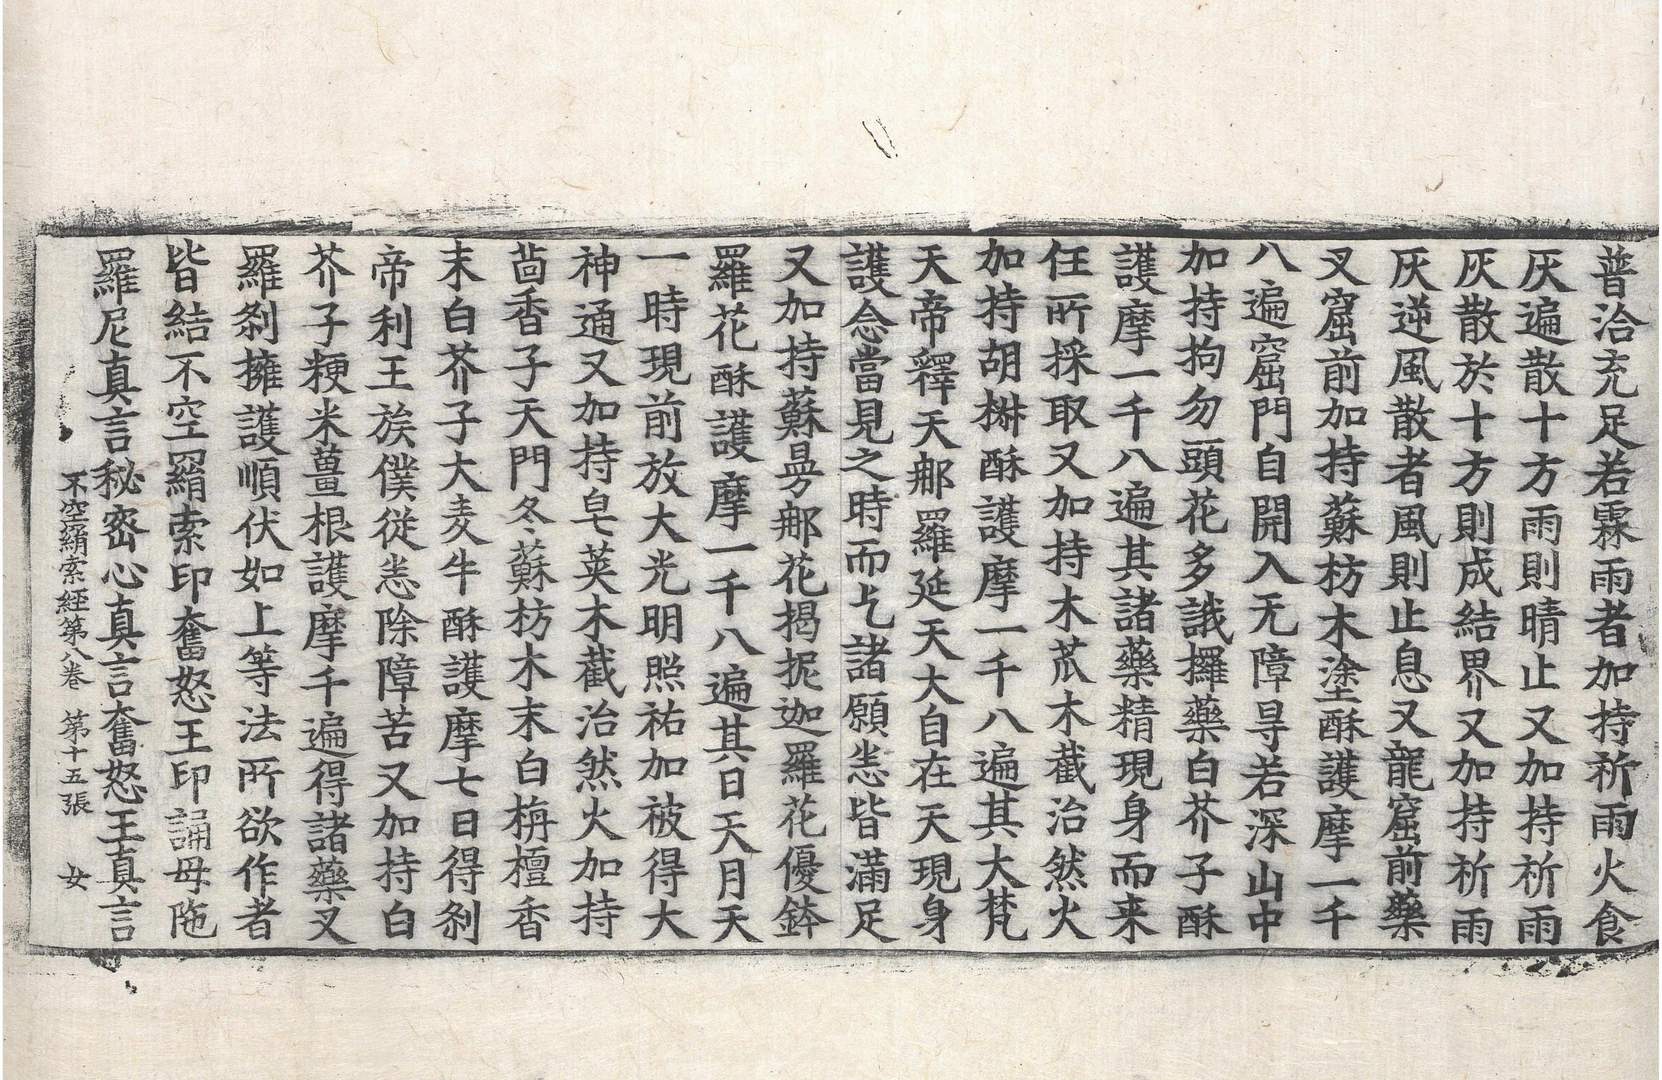 普洽充足若霖雨者加持祈雨火食
灰遍散十方雨則晴止又加持祈雨
灰散於十方則成結界又加持祈雨
灰逆風散者風則止息又龍窟前藥
叉窟前加持蘇枋木塗酥護摩一千
八遍窟門自開入无障㝵若深山中
加持拘勿頭花多誐攞藥白芥子酥
護摩一千八遍其諸藥精現身而来
任所採取又加持木苽木截治然火
加持胡椒酥護摩一千八遍其大梵
天帝釋天郍羅延天大自在天現身
護念當見之時而乞諸願恙皆滿足
又加持蘇曼郍花揭抳迦羅花優鉢
羅花酥護摩一千八遍其日天月天
一時現前放大光明照祐加被得大
神通又加持皂莢木截治然火加持
茴香子天門冬蘇枋木末白栴檀香
末白芥子大麦牛酥護摩七日得刹
帝利王族僕従恙除障苦又加持白
芥子粳米薑根護摩千遍得諸藥叉
羅刹擁護順伏如上等法所欲作者
皆結不空羂索印奮怒王印誦母陁
羅尼真言秘密心真言奮怒王真言
不空羂索経第八卷 第十五張 女